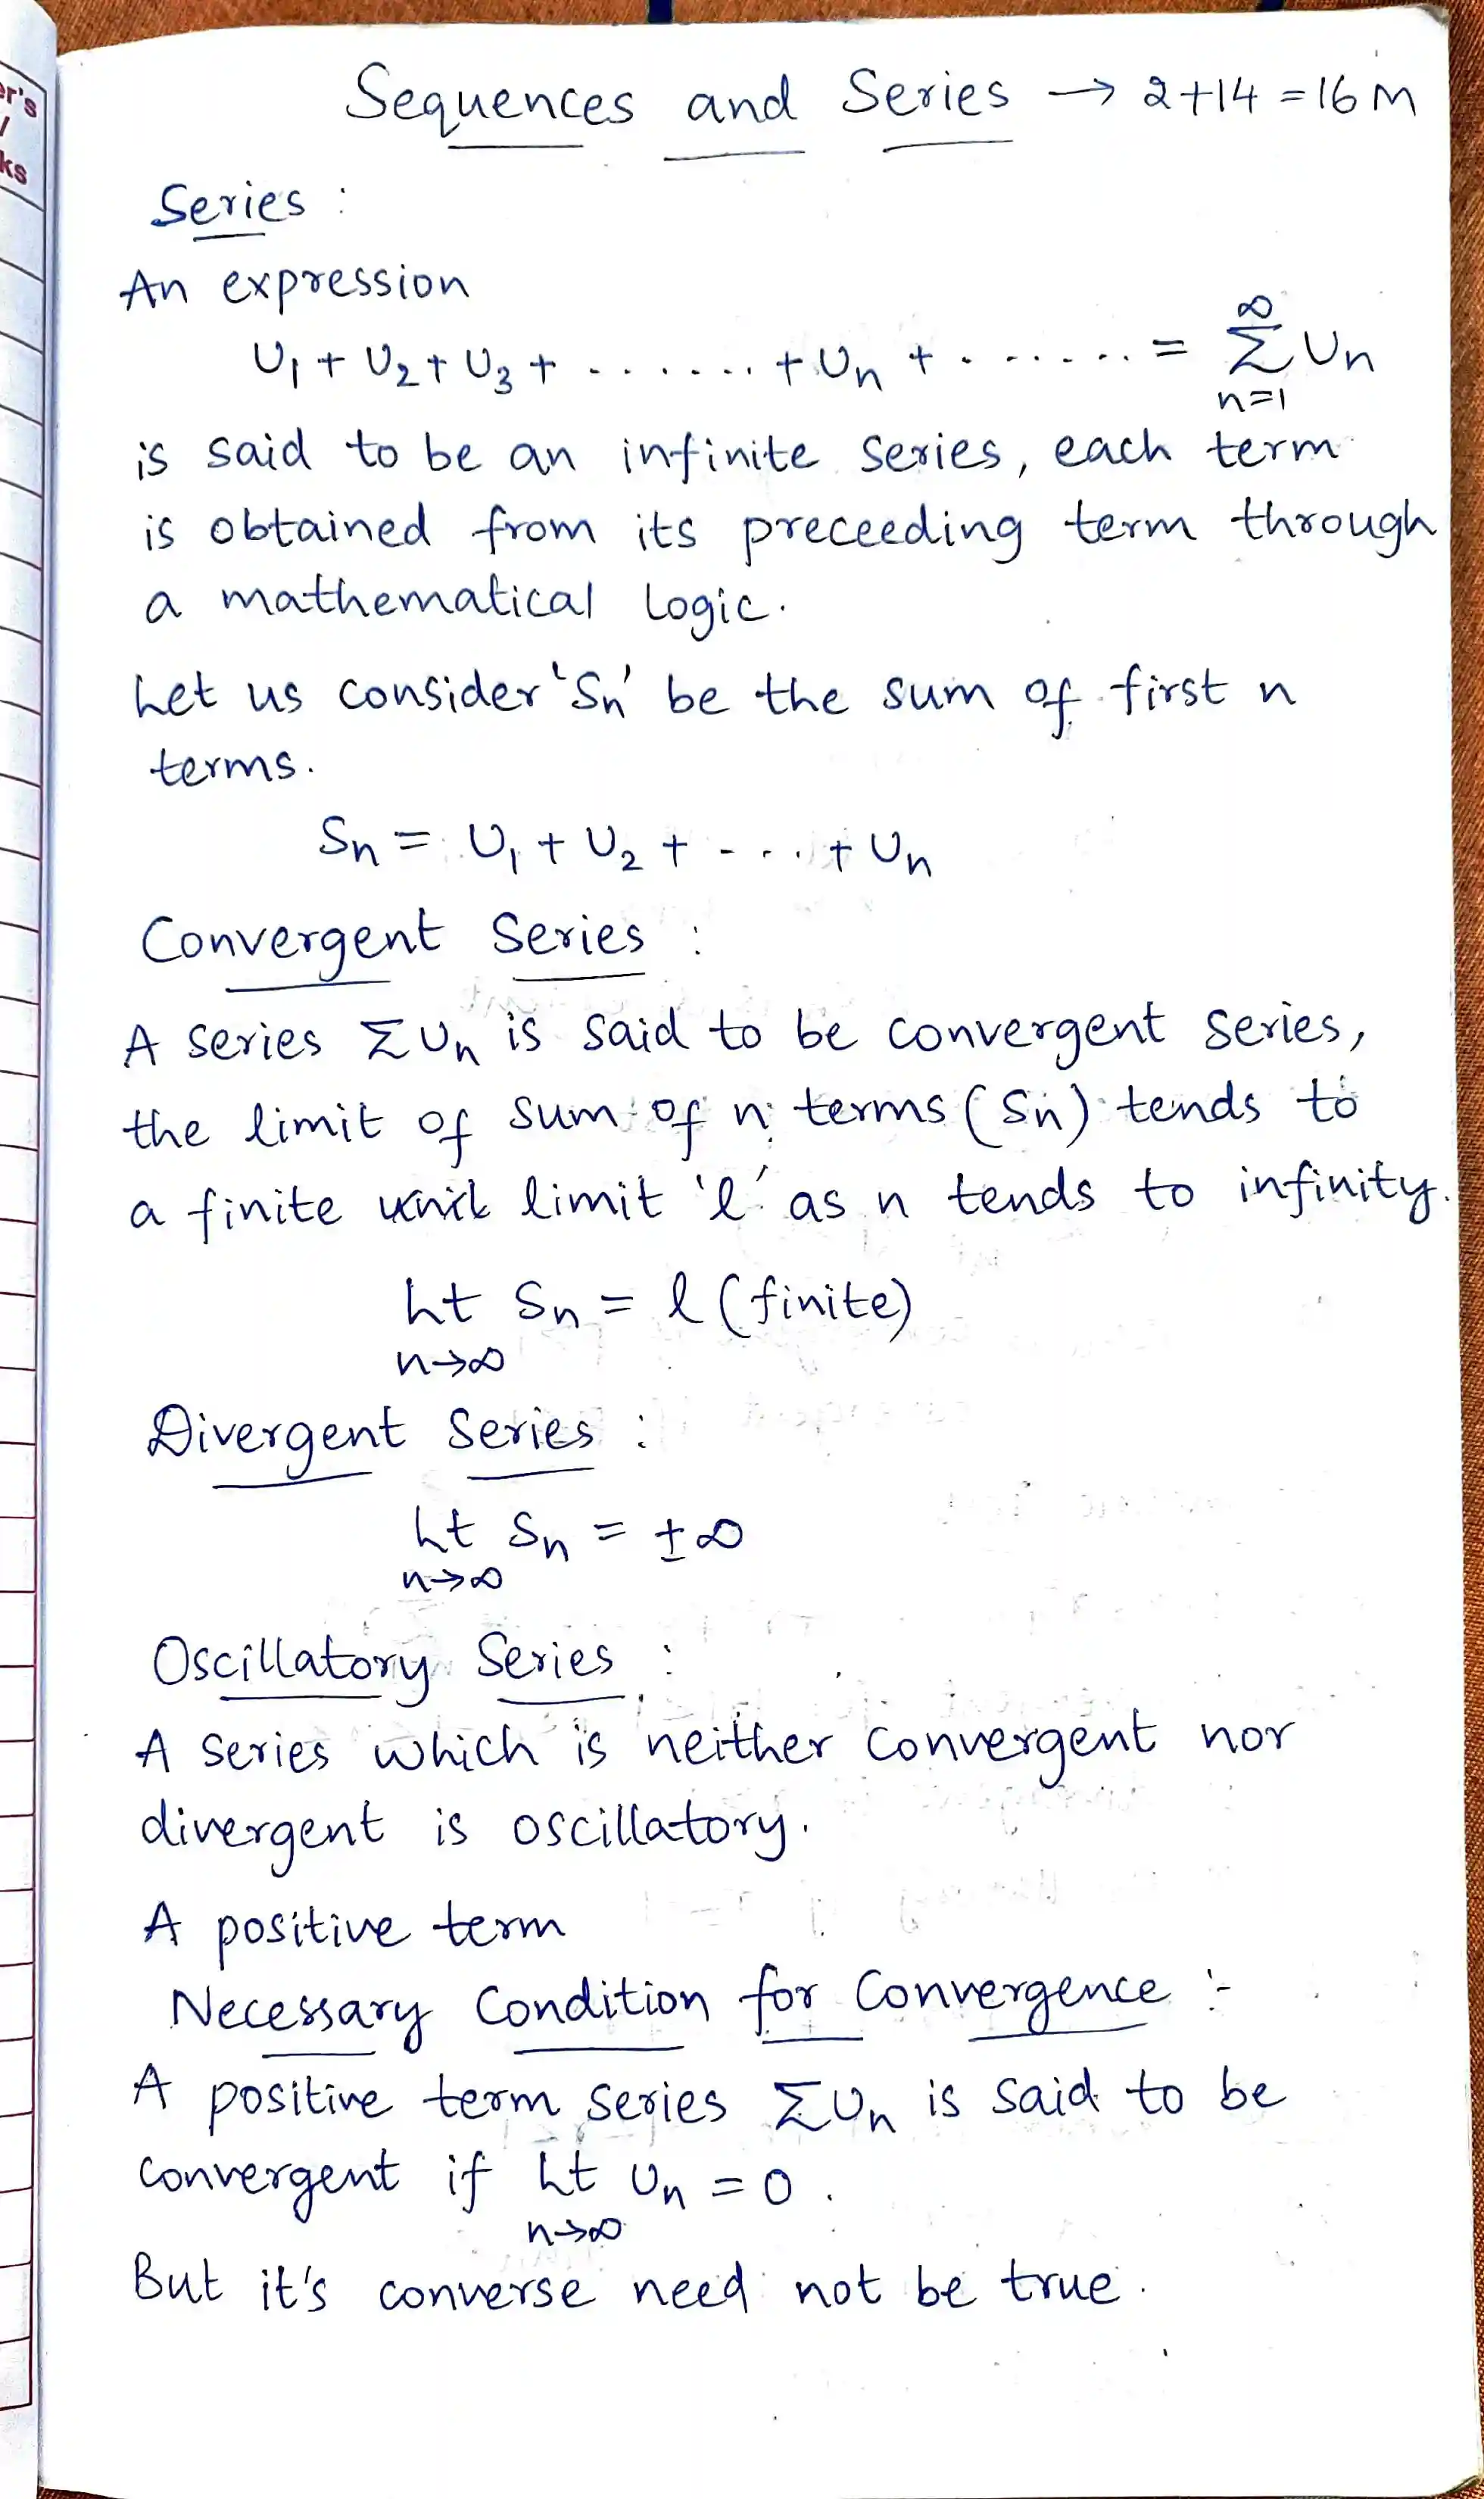 er's
/
ks
Sequences and Series → 2+14 = 16 M
Series :
An expression
U₁ + U₂ + U₃ + ....... + Uₙ + ....... = ∞ Σ n=1 Uₙ
is said to be an infinite series, each term
is obtained from its preceeding term through
a mathematical logic.
Let us consider 'Sn' be the sum of first n
terms.
Sn = U₁ + U₂ + .... + Un
Convergent Series :
A series ΣUn is said to be convergent series,
the limit of sum of n terms (Sn) tends to
a finite limit 'l' as n tends to infinity.
Lt Sn = l (finite)
n→∞
Divergent Series :
Lt Sn = ±∞
n→∞
Oscillatory Series :
A series which is neither convergent nor
divergent is oscillatory.
A positive term
Necessary Condition for Convergence :-
A positive term series ΣUn is said to be
convergent if Lt Un = 0 .
n→∞
But it's converse need not be true.